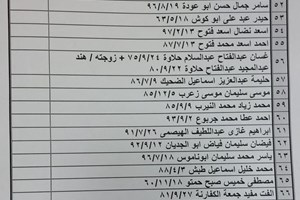 ٥٢ سامر جمال حسن ابو عودة ٩٦/٨/١٩
٥٣ حيدر عبد علي ابو كوش ٦٣/٥/١٨
٥٤ اسعد نضال اسعد فتوح ٩٧/٢/١٣
٥٥ احمد اسعد محمد فتوح ٨٧/٧/١٣
٥٦ غسان عبدالفتاح عبدالسلام حلاوة ٧٥/٩/٢٤ + زوجته / هند
عبدالمجيد عبدالفتاح حلاوة ٨٠/٩/٢٢
٥٧ حليمة عبدالعزيز اسماعيل الضحيك ٨٦/٧/٩
٥٨ موسى سليمان موسى زعرب ٨٥/١٢/٥
٥٩ محمد زياد محمد النيرب ٨٥/٩/٩
٦٠ احمد عطا محمد جربوع ٩٣/٦/٢
٦١ ابراهيم غازى عبداللطيف الهيصمي ٩١/٧/٢٦
٦٢ فيضان سليمان فياض ابو الجديان ٩٢/٩/١٢
٦٣ ياسر محمد سليمان ابوناموس ٩٦/٧/١٨
٦٤ محمد خليل اسماعيل طبش ٨٨/٤/٣
٦٥ مصطفى خميس صبح حمتو ٦٠/١١/١٨
٦٦ الفت مفيد جمعة الكفارنة ٨١/٩/٢٧